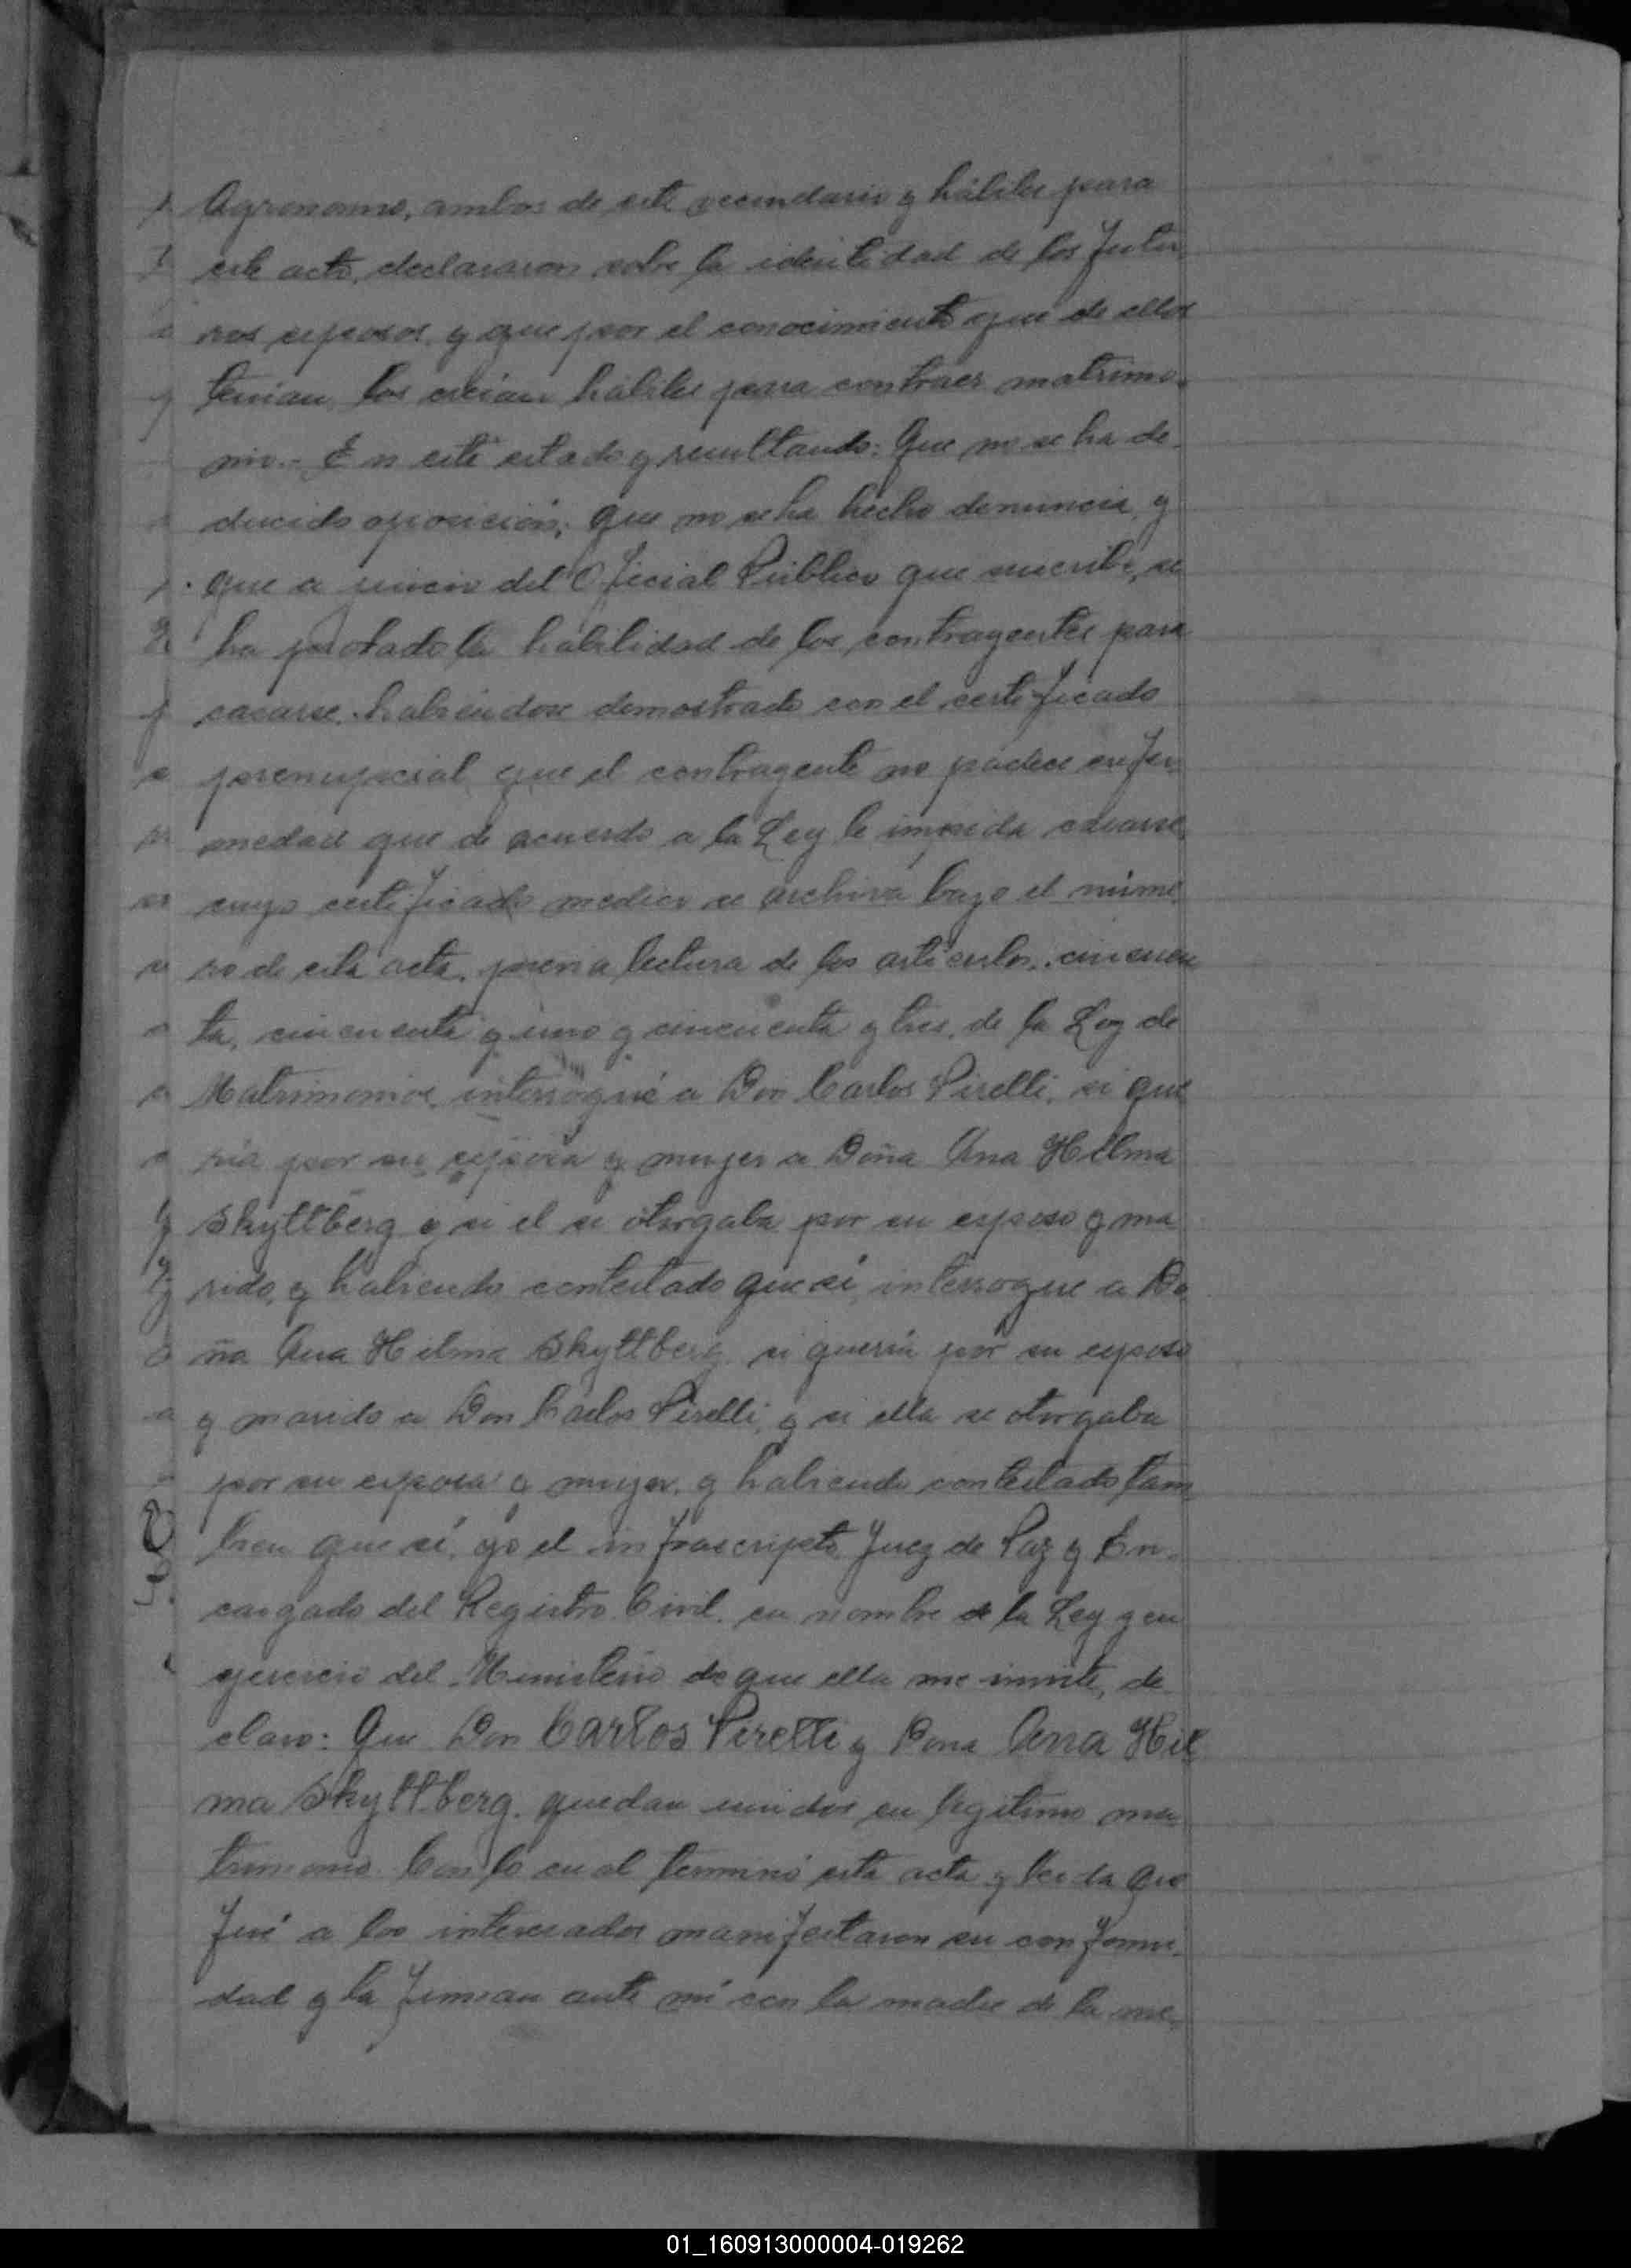 Agronomo, ambos de este vecindario y hábiles para
este acto, declararon sobre la identidad de los futu-
ros esposos, y que por el conocimiento que de ellos
tenian los creian hábiles para contraer matrimo-
nio.- En este estado y resultando: Que no se ha de-
ducido oposición; que no se ha hecho denuncia, y
que a juicio del Oficial Público que suscribe, se
ha probado la habilidad de los contragentes para
casarse, habiendose demostrado con el certificado
prenupcial que el contragente no padece enfer-
medad que de acuerdo a la Ley le impida casarse,
cuyo certificado medico se archiva bajo el núme-
ro de esta acta, previa lectura de los articulos, cincuen
ta, cincuenta y uno y cincuenta y tres, de la Ley de
Matrimonios, interrogué a Don Carlos Pirelli, si que
ria por su esposa y mujer a Doña Ana Hilma
Skyttberg y si el se otorgaba por su esposo y ma
rido, y habiendo contestado que sí, interrogue a Do
ña Ana Hilma Skyttberg, si queria por su esposo
y marido a Don Carlos Pirelli, y si ella se otorgaba
por su esposa y mujer, y habiendo contestado tam
bien que sí, yo el infrascripto Juez de Paz y En-
cargado del Registro Civil, en nombre de la Ley y en
ejercicio del Ministerio de que ella me inviste, de
claro: Que Don Carlos Pirelli y Dona Ana Hil
ma Skyttberg, quedan unidos en legitimo ma
trimonio. Con lo cual terminó esta acta y leida que
fué a los interesados manifestaron su conformi-
dad y la firman ante mí con la madre de la me-
01_160913000004-019262